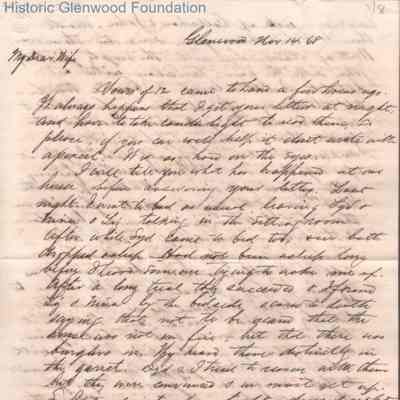 Historic Glenwood Foundation
1/8
Glenwood Nov 14. 68
My dear Wife
Yours of 12 came to hand a few hours ago.
It always happens that I get your letters at night
and have to take candle light to read them, so
please, if you can well help it dont write with
a pencil. It is so hard on the eyes.
I will tell you what has happened at our
house before answering your letter. Last
night I went to bed as usual leaving Syd &
Mina & talking in the sitting room
After while Syd came to bed too, & we both
dropped asleep. Had not been asleep long
before I heard someone trying to wake me up.
After a long trial they succeeded & I found
& Mina by the bedside, scared to death
saying that not to be scared that the
house was not on fire, but that there was
burglars in. They heard them distinctly in
the garret. Syd & I tried to reason with them
but they were convinced & we must get up.